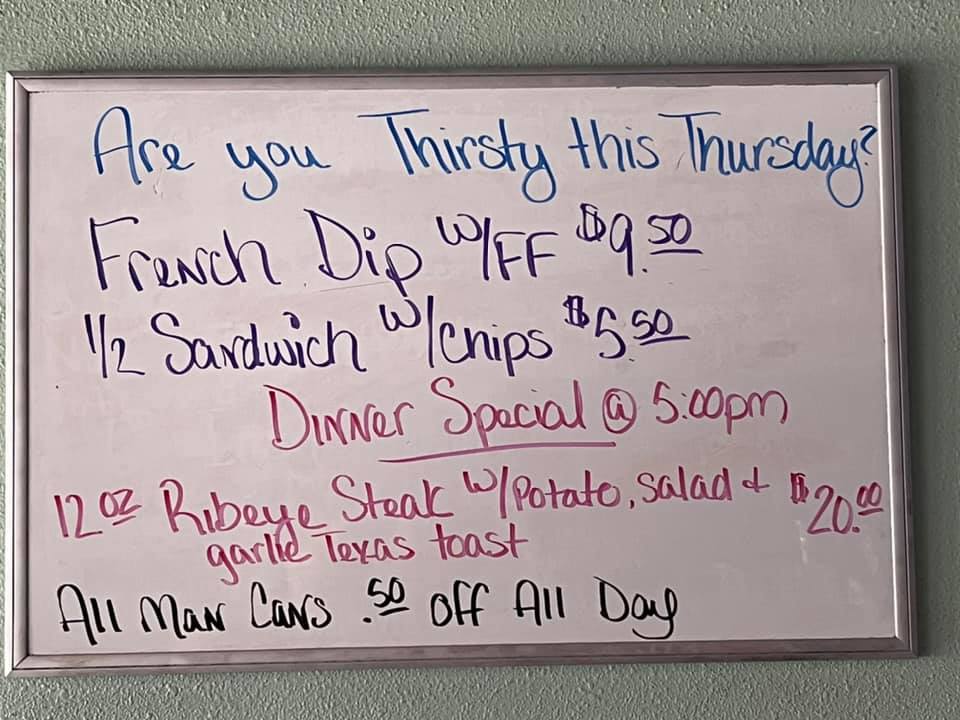 Are you Thirsty this Thursday?
French Dip w/FF $9.50
1/2 Sandwich w/chips $5.50
Dinner Special @ 5:00pm
12 oz Ribeye Steak w/Potato, salad + $20.00
garlic Texas toast
All Man Cans .50 off All Day